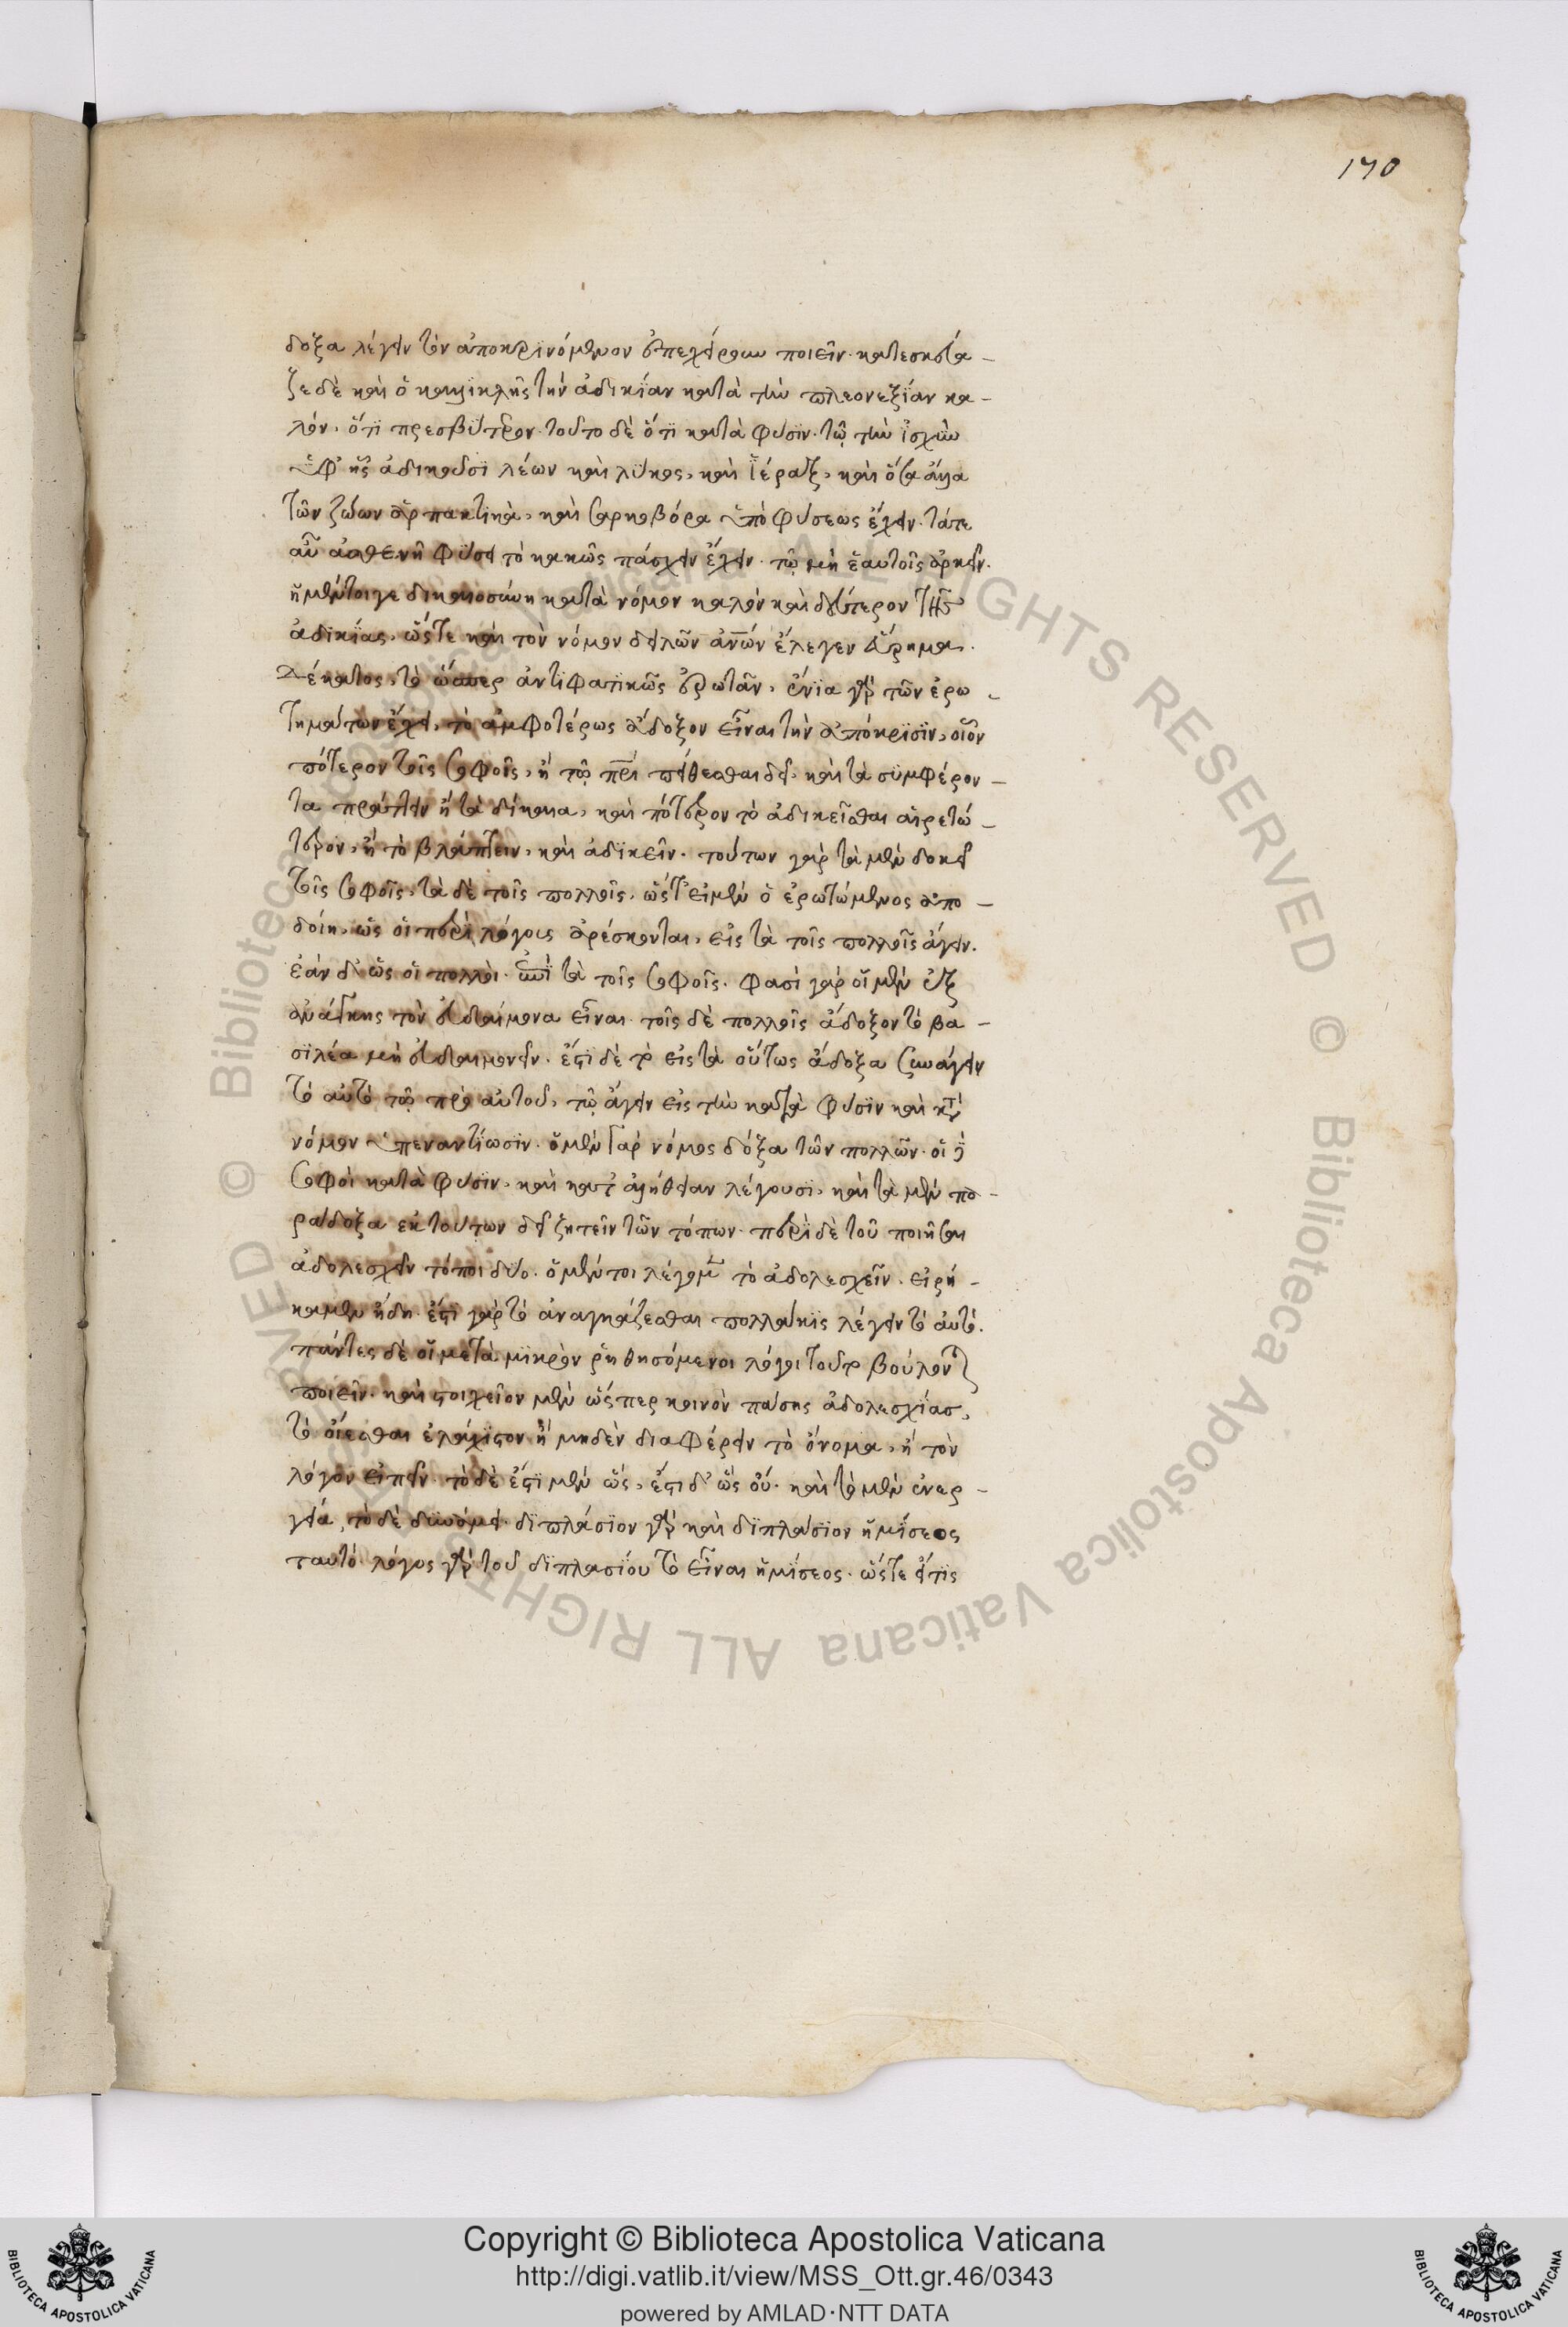 170
δόξα λέγειν τὸν ἀποκρινόμενον ἐπεχείρουν ποιεῖν. κατεσκεύα-
ζε δὲ καὶ ὁ καλλικλῆς τὴν ἀδικΐαν κατὰ τὴν πλεονεξΐαν κα-
λόν. ὅτι πρεσβύτερον. τοῦτο δὲ ὅτι κατὰ φύσιν. τῶ τὴν ἰσχὺν
ἐφ' ἧς ἀδικοῦσι λέων καὶ λύκος, καὶ ἱέραξ, καὶ ὅσα ἄλλα
τῶν ζώων ἁρπακτικὰ, καὶ σαρκοβόρα ὑπὸ φύσεως ἔχειν. τά τε
αὖ ἀσθενῆ φύσει τὸ κακῶς πάσχειν ἔχειν. τῶ μὴ ἑαυτοῖς ἀρκεῖν.
ἡ μέντοιγε δικαιοσύνη κατὰ νόμον καλὸν καὶ δεύτερον τῆς
ἀδικΐας. ὥστε καὶ τὸν νόμον δειλῶν ἀνῶν ἔλεγεν εὕρημα.
Δέκατος, τὸ ὥσπερ ἀντιφατικῶς ἐρωτᾶν, ἔνια γὰρ τῶν ἐρω-
τημάτων ἔχει, τὸ ἀμφοτέρως ἄδοξον εἶναι τὴν ἀπόκρισιν, οἷον
πότερον τοῖς σοφοῖς, ἢ τῶ πρι πείθεσθαι δεῖ. καὶ τὰ συμφέρον-
τα πράττειν ἢ τὰ δίκαια, καὶ πότερον τὸ ἀδικεῖσθαι αἱρετώ-
τερον, ἢ τὸ βλάπτειν, καὶ ἀδικεῖν. τούτων γὰρ τὰ μὲν δοκεῖ
τοῖς σοφοῖς, τὰ δὲ τοῖς πολλοῖς. ὥστ' εἰ μὲν ὁ ἐρωτώμενος ἀπο-
δοίη, ὡς οἱ περὶ λόγους ἀρέσκονται, εἰς τὰ τοῖς πολλοῖς ἄγειν.
ἐὰν δ' ὡς οἱ πολλοὶ. ἐπὶ τὰ τοῖς σοφοῖς. φασὶ γὰρ οἱ μὲν ἐξ
ἀνάγκης τὸν εὐδαίμονα εἶναι. τοῖς δὲ πολλοῖς ἄδοξον τὸ βα-
σιλέα μὴ εὐδαιμονεῖν. ἔστι δὲ τὸ εἰς τὰ οὕτως ἄδοξα συνάγειν
τὸ αὐτὸ τῶ πρὸ αὐτοῦ, τῶ ἄγειν εἰς τὴν κατὰ φύσιν καὶ κτ
νόμον ὑπεναντίωσιν. ὁ μὲν γὰρ νόμος δόξα τῶν πολλῶν. οἱ δὲ
σοφοὶ κατὰ φύσιν. καὶ κατ' ἀλήθειαν λέγουσι, καὶ τὰ μὲν πα-
ράδοξα ἐκ τούτων δεῖ ζητεῖν τῶν τόπων. περὶ δὲ τοῦ ποιῆσαι
ἀδολεσχεῖν τόποι δύο. ὃ μέντοι λέγομεν τὸ ἀδολεσχεῖν. εἰρή-
καμεν ἤδη. ἔστι γὰρ τὸ ἀναγκάζεσθαι πολλάκις λέγειν τὸ αὐτὸ.
πάντες δὲ οἱ μετὰ μικρὸν ῥηθησόμενοι λόγοι τοῦτο βούλονται
ποιεῖν. καὶ στοιχεῖον μὲν ὥσπερ κοινὸν πάσης ἀδολεσχίας,
τὸ οἴεσθαι ἐλάχιστον ἢ μηδὲν διαφέρειν τὸ ὄνομα, ἢ τὸν
λόγον εἰπεῖν. τὸ δὲ ἔστι μὲν ὡς, ἔστι δ' ὡς οὔ. καὶ τὸ μὲν ἐνερ-
γείᾳ, τὸ δὲ δυνάμει. διπλάσιον γὰρ καὶ διπλάσιον ἡμίσεος
ταυτό. λόγος γὰρ τοῦ διπλασίου τὸ εἶναι ἡμίσεος. ὥστε εἴ τις
Copyright © Biblioteca Apostolica Vaticana
http://digi.vatlib.it/view/MSS_Ott.gr.46/0343
powered by AMLAD·NTT DATA
BIBLIOTECA APOSTOLICA VATICANA
BIBLIOTECA APOSTOLICA VATICANA
© Biblioteca Apostolica Vaticana ALL RIGHTS RESERVED © Biblioteca Apostolica Vaticana ALL RIGHTS RESERVED